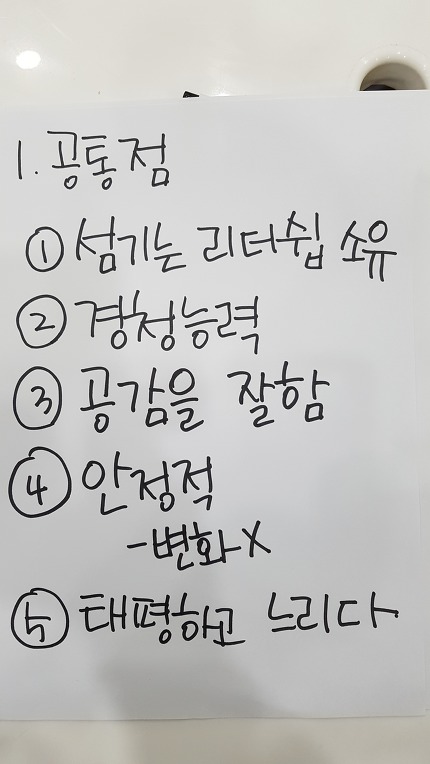 1. 공통점
① 섬기는 리더쉽 소유
② 경청능력
③ 공감을 잘함
④ 안정적
-변화X
⑤ 태평하고 느리다